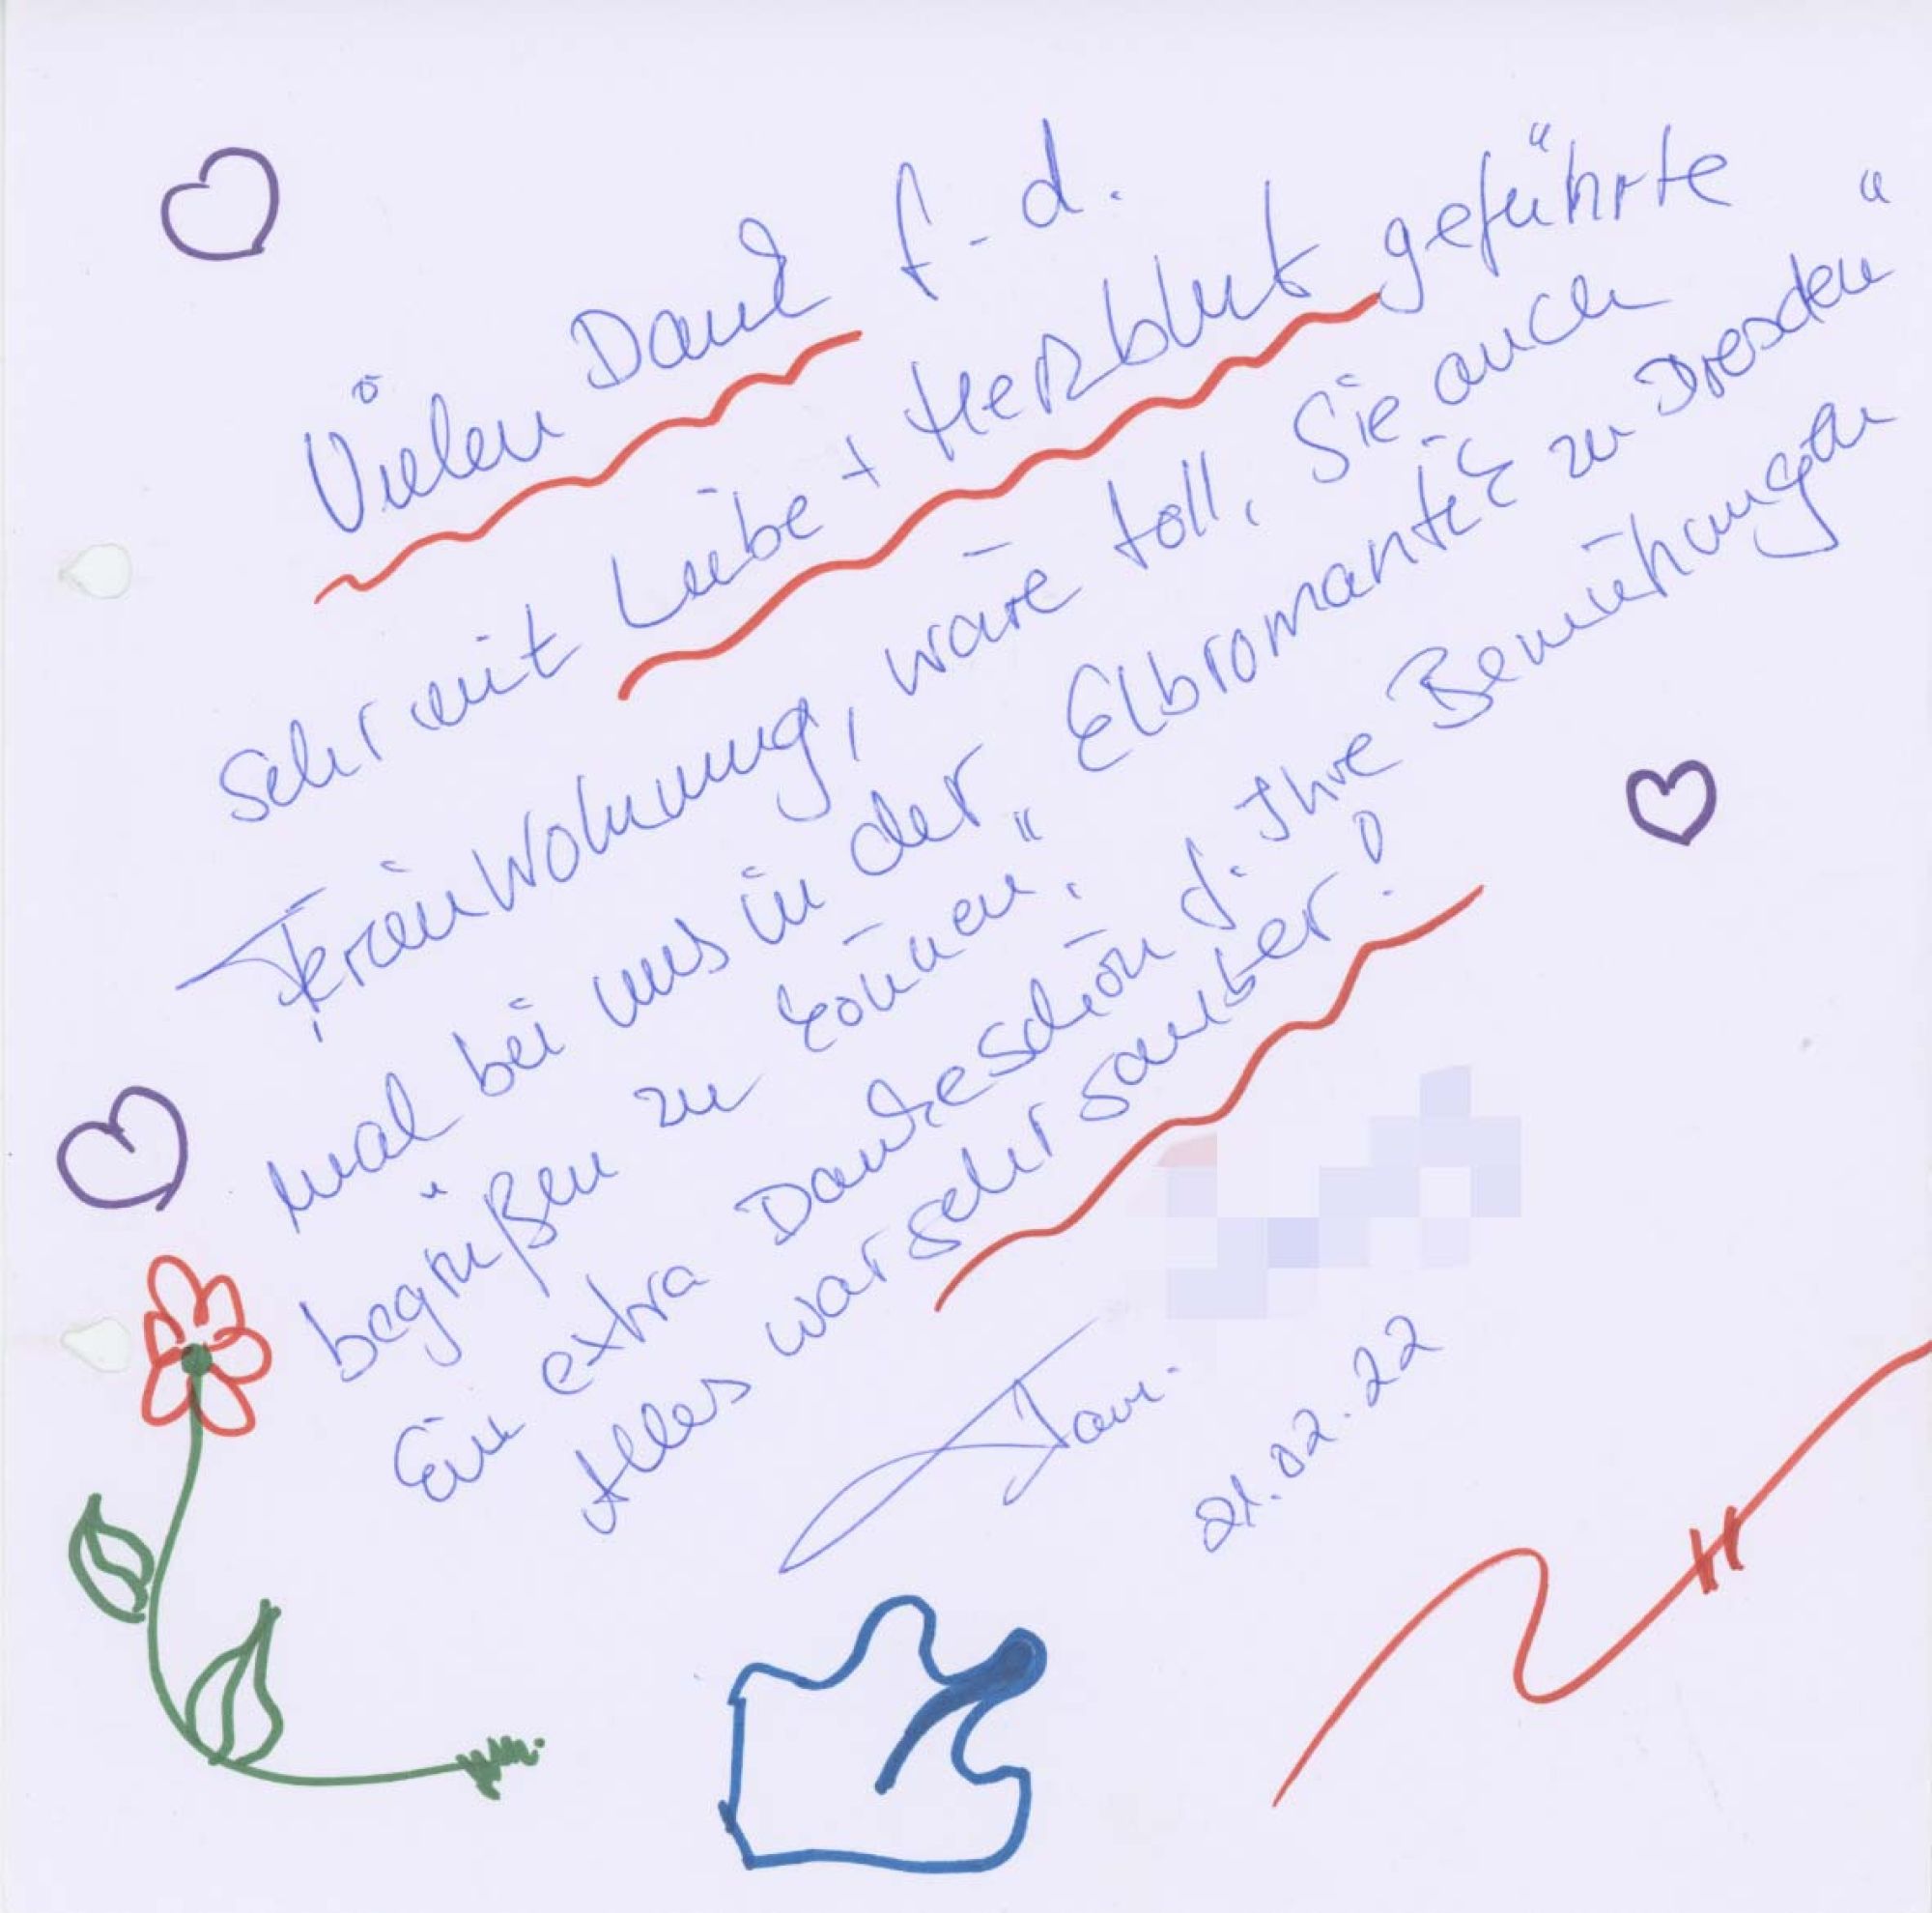 Vielen Dank f. d.
sehr mit Liebe + Herzblut geführte
Ferienwohnung, wäre toll, Sie auch
mal bei uns in der „Elbromantik zu Dresden“
begrüßen zu können.
Ein extra Dankeschön f. Ihre Bemühungen
Alles war sehr sauber!
21.02.22